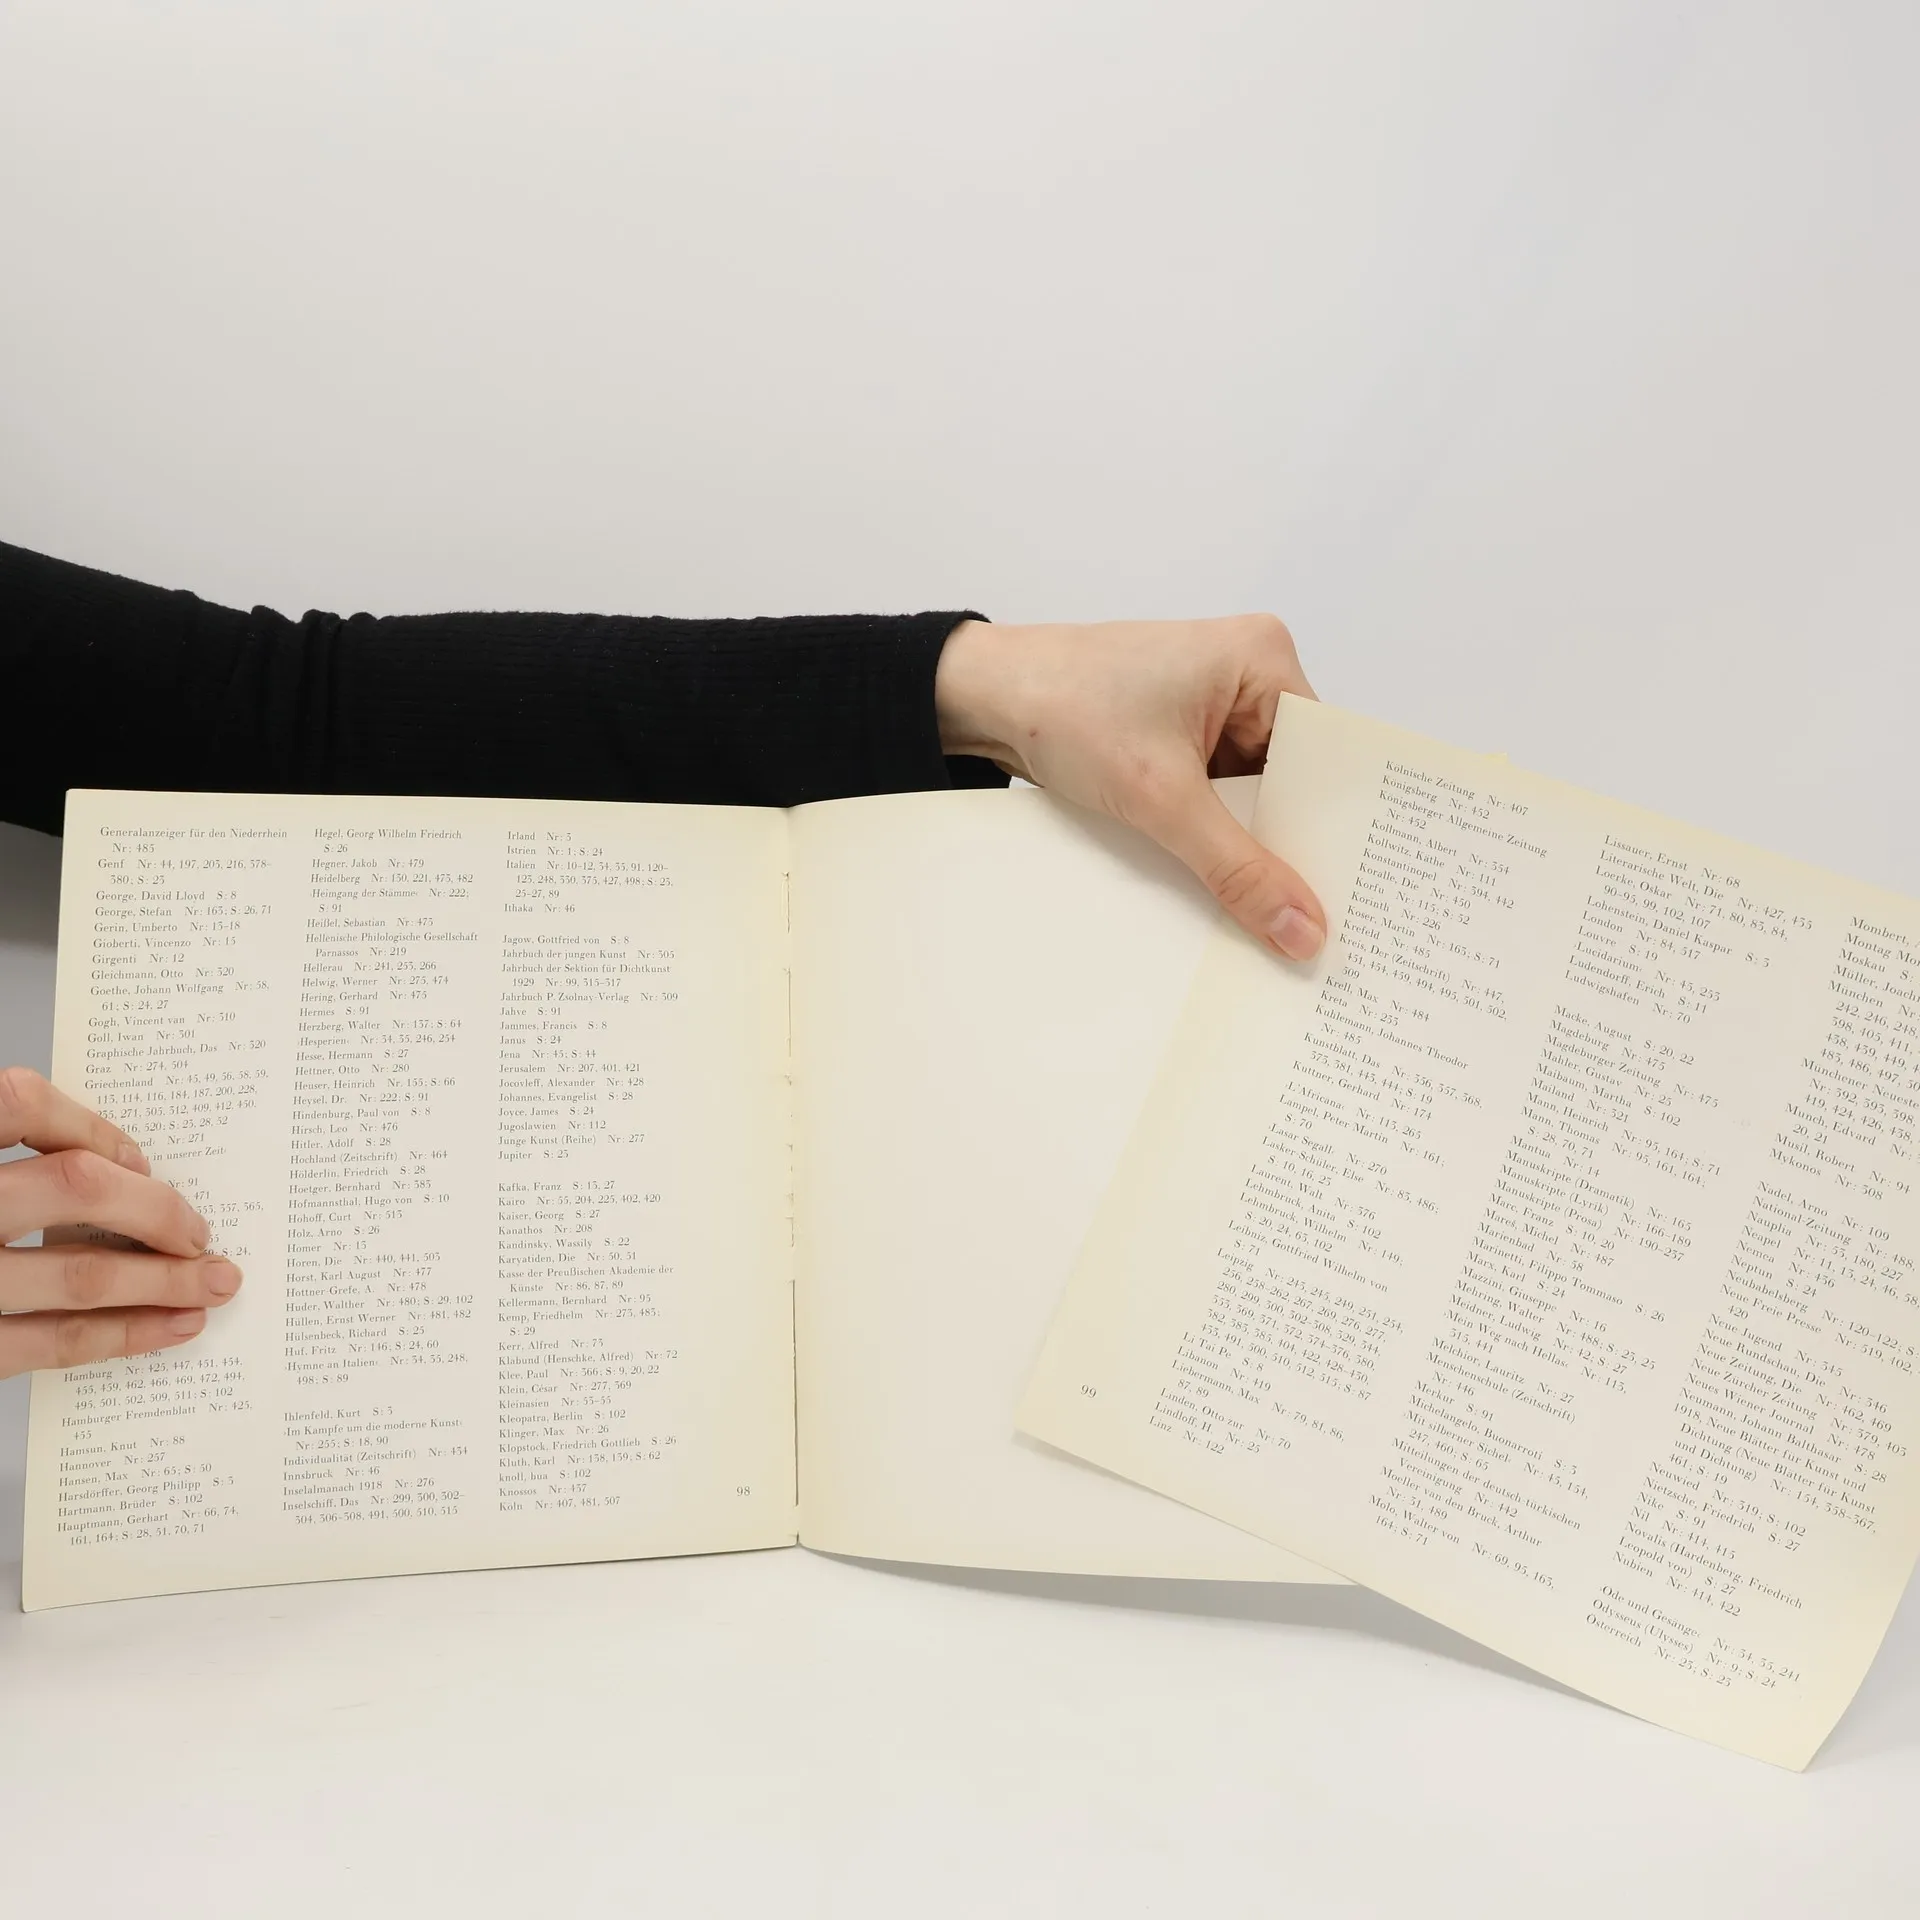 Generalanzeiger für den Niederrhein
Nr: 485
Genf Nr: 44, 197, 203, 216, 378–
380; S: 23
George, David Lloyd S: 8
George, Stefan Nr: 163; S: 26, 71
Gerin, Umberto Nr: 13–18
Gioberti, Vincenzo Nr: 15
Girgenti Nr: 12
Gleichmann, Otto Nr: 320
Goethe, Johann Wolfgang Nr: 58,
61; S: 24, 27
Gogh, Vincent van Nr: 310
Goll, Iwan Nr: 301
Graphische Jahrbuch, Das Nr: 320
Graz Nr: 274, 504
Griechenland Nr: 45, 49, 56, 58, 59,
113, 114, 116, 184, 187, 200, 228,
255, 271, 305, 312, 409, 412, 450,
516, 520; S: 23, 28, 52
Nr: 271
in unserer Zeit‹
Nr: 91
471
355, 357, 365,
102
S: 24,
Nr: 186
Hamburg Nr: 425, 447, 451, 454,
455, 459, 462, 466, 469, 472, 494,
495, 501, 502, 509, 511; S: 102
Hamburger Fremdenblatt Nr: 425,
455
Hamsun, Knut Nr: 88
Hannover Nr: 257
Hansen, Max Nr: 65; S: 50
Harsdörffer, Georg Philipp S: 3
Hartmann, Brüder S: 102
Hauptmann, Gerhart Nr: 66, 74,
161, 164; S: 28, 51, 70, 71
Hegel, Georg Wilhelm Friedrich
S: 26
Hegner, Jakob Nr: 479
Heidelberg Nr: 150, 221, 473, 482
›Heimgang der Stämme‹ Nr: 222;
S: 91
Heißel, Sebastian Nr: 475
Hellenische Philologische Gesellschaft
Parnassos Nr: 219
Hellerau Nr: 241, 253, 266
Helwig, Werner Nr: 275, 474
Hering, Gerhard Nr: 475
Hermes S: 91
Herzberg, Walter Nr: 137; S: 64
›Hesperien‹ Nr: 34, 35, 246, 254
Hesse, Hermann S: 27
Hettner, Otto Nr: 280
Heuser, Heinrich Nr: 155; S: 66
Heysel, Dr. Nr: 222; S: 91
Hindenburg, Paul von S: 8
Hirsch, Leo Nr: 476
Hitler, Adolf S: 28
Hochland (Zeitschrift) Nr: 464
Hölderlin, Friedrich S: 28
Hoetger, Bernhard Nr: 383
Hofmannsthal, Hugo von S: 10
Hohoff, Curt Nr: 513
Holz, Arno S: 26
Homer Nr: 15
Horen, Die Nr: 440, 441, 503
Horst, Karl August Nr: 477
Hottner-Grefe, A. Nr: 478
Huder, Walther Nr: 480; S: 29, 102
Hüllen, Ernst Werner Nr: 481, 482
Hülsenbeck, Richard S: 25
Huf, Fritz Nr: 146; S: 24, 60
›Hymne an Italien‹ Nr: 34, 35, 248,
498; S: 89
Ihlenfeld, Kurt S: 3
›Im Kampfe um die moderne Kunst‹
Nr: 255; S: 18, 90
Individualität (Zeitschrift) Nr: 434
Innsbruck Nr: 46
Inselalmanach 1918 Nr: 276
Inselschiff, Das Nr: 299, 300, 302–
304, 306–308, 491, 500, 510, 515
Irland Nr: 3
Istrien Nr: 1; S: 24
Italien Nr: 10–12, 34, 35, 91, 120–
123, 248, 330, 375, 427, 498; S: 23,
25–27, 89
Ithaka Nr: 46
Jagow, Gottfried von S: 8
Jahrbuch der jungen Kunst Nr: 305
Jahrbuch der Sektion für Dichtkunst
1929 Nr: 99, 315–317
Jahrbuch P. Zsolnay-Verlag Nr: 309
Jahve S: 91
Jammes, Francis S: 8
Janus S: 24
Jena Nr: 45; S: 44
Jerusalem Nr: 207, 401, 421
Jocuvleff, Alexander Nr: 428
Johannes, Evangelist S: 28
Joyce, James S: 24
Jugoslawien Nr: 112
Junge Kunst (Reihe) Nr: 277
Jupiter S: 23
Kafka, Franz S: 13, 27
Kairo Nr: 55, 204, 225, 402, 420
Kaiser, Georg S: 27
Kanathos Nr: 208
Kandinsky, Wassily S: 22
Karyatiden, Die Nr: 50, 51
Kasse der Preußischen Akademie der
Künste Nr: 86, 87, 89
Kellermann, Bernhard Nr: 95
Kemp, Friedhelm Nr: 273, 483;
S: 29
Kerr, Alfred Nr: 73
Klabund (Henschke, Alfred) Nr: 72
Klee, Paul Nr: 366; S: 9, 20, 22
Klein, César Nr: 277, 369
Kleinasien Nr: 53–55
Kleopatra, Berlin S: 102
Klinger, Max Nr: 26
Klopstock, Friedrich Gottlieb S: 26
Kluth, Karl Nr: 138, 139; S: 62
knoll, hua S: 102
Knossos Nr: 437
Köln Nr: 407, 481, 507
98
Kölnische Zeitung Nr: 407
Königsberg Nr: 452
Königsberger Allgemeine Zeitung
Nr: 452
Kollmann, Albert Nr: 354
Kollwitz, Käthe Nr: 111
Konstantinopel Nr: 394, 442
Koralle, Die Nr: 450
Korfu Nr: 115; S: 52
Korinth Nr: 226
Koser, Martin Nr: 163; S: 71
Krefeld Nr: 485
Kreis, Der (Zeitschrift) Nr: 447,
451, 454, 459, 494, 495, 501, 502,
509
Krell, Max Nr: 484
Kreta Nr: 233
Kuhlemann, Johannes Theodor
Nr: 485
Kunstblatt, Das Nr: 356, 357, 368,
373, 381, 443, 444; S: 19
Kuttner, Gerhard Nr: 174
›L'Africana‹ Nr: 113, 265
Lampel, Peter Martin Nr: 161;
S: 70
›Lasar Segall‹ Nr: 270
Lasker-Schüler, Else Nr: 83, 486;
S: 10, 16, 23
Laurent, Walt Nr: 376
Lehmbruck, Anita S: 102
Lehmbruck, Wilhelm Nr: 149;
S: 20, 24, 63, 102
Leibniz, Gottfried Wilhelm von
S: 71
Leipzig Nr: 243, 245, 249, 251, 254,
256, 258–262, 267, 269, 276, 277,
280, 299, 300, 302–308, 329, 344,
353, 369, 371, 372, 374–376, 380,
382, 383, 385, 404, 422, 428–430,
433, 491, 500, 510, 512, 515; S: 87
Li Tai Pe S: 8
Libanon Nr: 419
Liebermann, Max Nr: 79, 81, 86,
87, 89
Linden, Otto zur Nr: 70
Lindloff, H. Nr: 25
Linz Nr: 122
99
Lissauer, Ernst Nr: 68
Literarische Welt, Die Nr: 427, 435
Loerke, Oskar Nr: 71, 80, 83, 84,
90–95, 99, 102, 107
Lohenstein, Daniel Kaspar S: 3
London Nr: 84, 517
Louvre S: 19
›Lucidarium‹ Nr: 45, 253
Ludendorff, Erich S: 11
Ludwigshafen Nr: 70
Macke, August S: 20, 22
Magdeburg Nr: 475
Magdeburger Zeitung Nr: 475
Mahler, Gustav Nr: 25
Maibaum, Martha S: 102
Mailand Nr: 321
Mann, Heinrich Nr: 95, 164; S: 71
Mann, Thomas Nr: 95, 161, 164;
S: 28, 70, 71
Mantua Nr: 14
Manuskripte (Dramatik) Nr: 165
Manuskripte (Lyrik) Nr: 166–189
Manuskripte (Prosa) Nr: 190–237
Marc, Franz S: 10, 20
Mareș, Michel Nr: 487
Marienbad Nr: 58
Marinetti, Filippo Tommaso S: 26
Marx, Karl S: 24
Mazzini, Giuseppe Nr: 16
Mehring, Walter Nr: 488; S: 23, 25
Meidner, Ludwig Nr: 42; S: 27
›Mein Weg nach Hellas‹ Nr: 113,
315, 441
Melchior, Lauritz Nr: 27
Menschenschule (Zeitschrift)
Nr: 446
Merkur S: 91
Michelangelo, Buonarroti S: 3
›Mit silberner Sichel‹ Nr: 45, 154,
247, 460; S: 65
Mitteilungen der deutsch-türkischen
Vereinigung Nr: 442
Moeller van den Bruck, Arthur
Nr: 31, 489
Molo, Walter von Nr: 69, 95, 163,
164; S: 71
Mombert,
Montag Mor
Moskau S:
Müller, Joach
München Nr:
242, 246, 248,
398, 403, 411,
438, 439, 449,
485, 486, 497,
Münchener Neueste
Nr: 392, 393, 398,
419, 424, 426, 438,
Munch, Edvard Nr:
20, 21
Musil, Robert Nr: 94
Mykonos Nr: 308
Nadel, Arno Nr: 109
National-Zeitung Nr: 488,
Nauplia Nr: 53, 180, 227
Neapel Nr: 11, 13, 24, 46, 58,
Nemea Nr: 436
Neptun S: 24
Neubabelsberg Nr: 120–122; S:
Neue Freie Presse Nr: 519, 402,
420
Neue Jugend Nr: 345
Neue Rundschau, Die Nr: 346
Neue Zeitung, Die Nr: 462, 469
Neue Zürcher Zeitung Nr: 379, 403
Neues Wiener Journal Nr: 478
Neumann, Johann Balthasar S: 28
1918, Neue Blätter für Kunst und
Dichtung (Neue Blätter für Kunst
und Dichtung) Nr: 154, 358–367,
461; S: 19
Neuwied Nr: 319; S: 102
Nietzsche, Friedrich S: 27
Nike S: 91
Nil Nr: 414, 415
Novalis (Hardenberg, Friedrich
Leopold von) S: 27
Nubien Nr: 414, 422
›Ode und Gesänge‹ Nr: 34, 35, 241
Odysseus (Ulysses) Nr: 9; S: 24
Österreich Nr: 23; S: 23